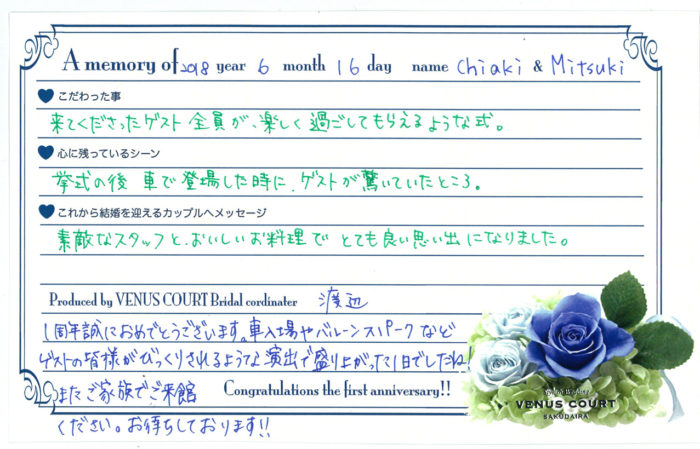 A memory of 2018 year 6 month 16 day name Chiaki & Mitsuki
こだわった事
来てくださったゲスト全員が、楽しく過ごしてもらえるような式。
心に残っているシーン
挙式の後 車で登場した時に、ゲストが驚いていたところ。
これから結婚を迎えるカップルへメッセージ
素敵なスタッフと、おいしいお料理で とても良い思い出になりました。
Produced by VENUS COURT Bridal cordinater 渡辺
1周年誠におめでとうございます。車入場やバルーンスパークなど
ゲストの皆様がびっくりされるような演出で盛り上がった1日でしたね!
またご家族でご来館 Congratulations the first anniversary!!
ください。お待ちしております!!
VENUS COURT
SAKUDAIRA